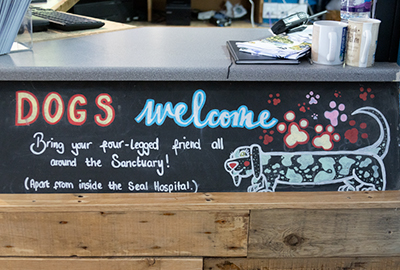 DOGS welcome
Bring your four-legged friend all
around the Sanctuary!
(Apart from inside the Seal Hospital.)